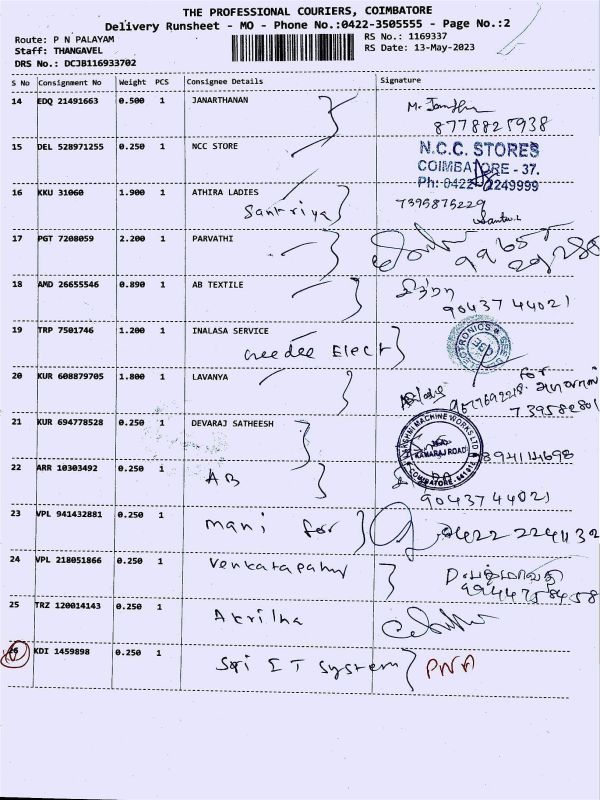 THE PROFESSIONAL COURIERS, COIMBATORE
Delivery Runsheet - MO - Phone No.:0422-3505555 - Page No.:2
Route: P N PALAYAM
RS No.: 1169337
Staff: THANGAVEL
RS Date: 13-May-2023
DRS No.: DCJB116933702
S No Consignment No Weight PCS Consignee Details Signature
14 EDQ 21491663 0.500 1 JANARTHANAN
8778825938
15 DEL 528971255 0.250 1 NCC STORE
N.C.C. STORES
COIMBATORE - 37.
Ph: 0422 2249999
16 KKU 31060 1.900 1 ATHIRA LADIES
7395875229
17 PGT 7208059 2.200 1 PARVATHI
18 AMD 26655546 0.890 1 AB TEXTILE
சித்ரா
90437 44021
19 TRP 7501746 1.200 1 INALASA SERVICE
Geedee Elect
20 KUR 608879705 1.800 1 LAVANYA
for
21 KUR 694778528 0.250 1 DEVARAJ SATHEESH
LAKSHMI MACHINE WORKS LTD
KAMARAJ ROAD
COIMBATORE
22 ARR 10303492 0.250 1 AB
90437 44021
23 VPL 941432881 0.250 1 mani for
0422 224432
24 VPL 218051866 0.250 1
D. பத்மாவதி
25 TRZ 120014143 0.250 1
26 KDI 1459898 0.250 1 Sri IT System PNA